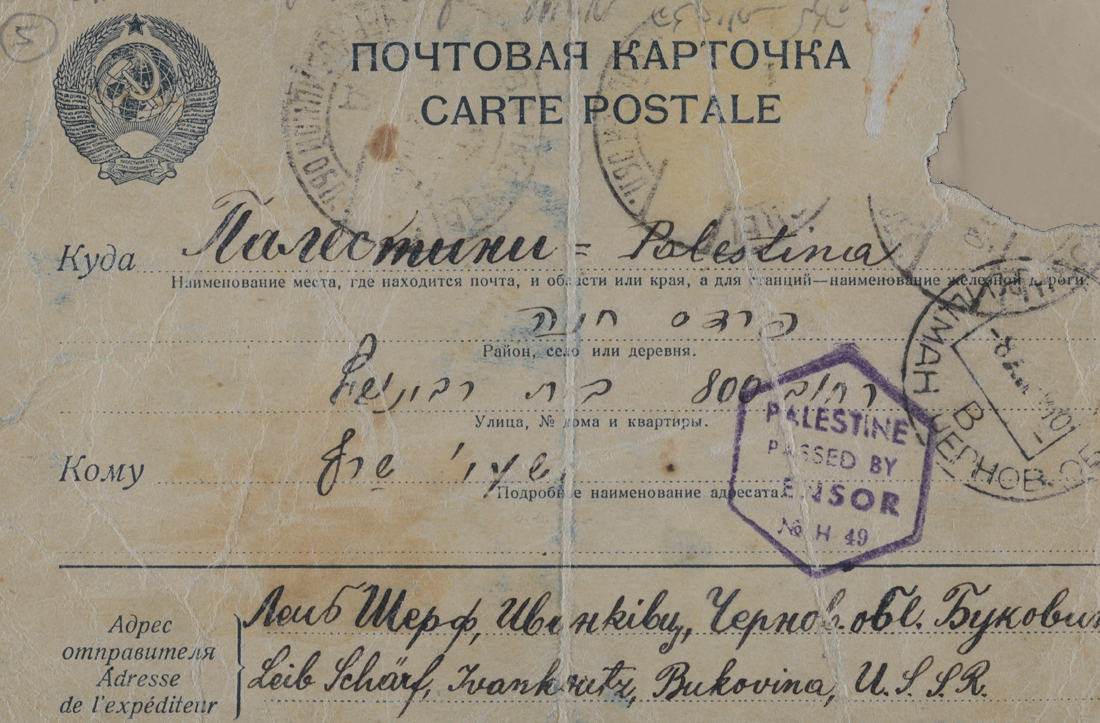 5
ПОЧТОВАЯ КАРТОЧКА
CARTE POSTALE
Куда Палестини = Palestina
Наименование места, где находится почта, и области или края, а для станций—наименование железной дороги.
פרדס חנה
Район, село или деревня.
רחוב 800 בית
Улица, № дома и квартиры.
PALESTINE
PASSED BY
ENSOR
№ H 49
Кому שרף
Подробное наименование адресата.
Адрес отправителя
Adresse de l'expéditeur
Леиб Шерф, Иванківц, Чернов. обл. Букови
Leib Schärf, Ivankoutz, Bukovina, U.S.S.R.